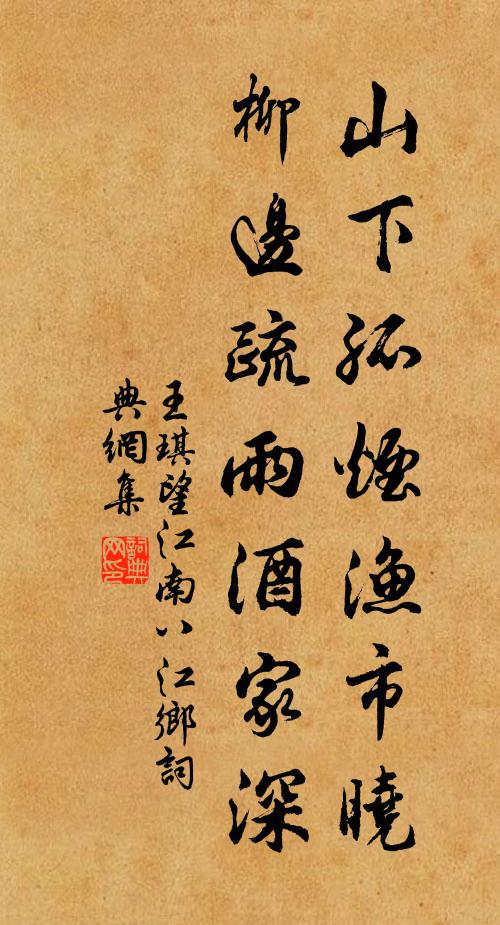 山下孤煙漁市曉
柳邊疏雨酒家深
王琪望江南八江鄉詞
典網集
詞典網印